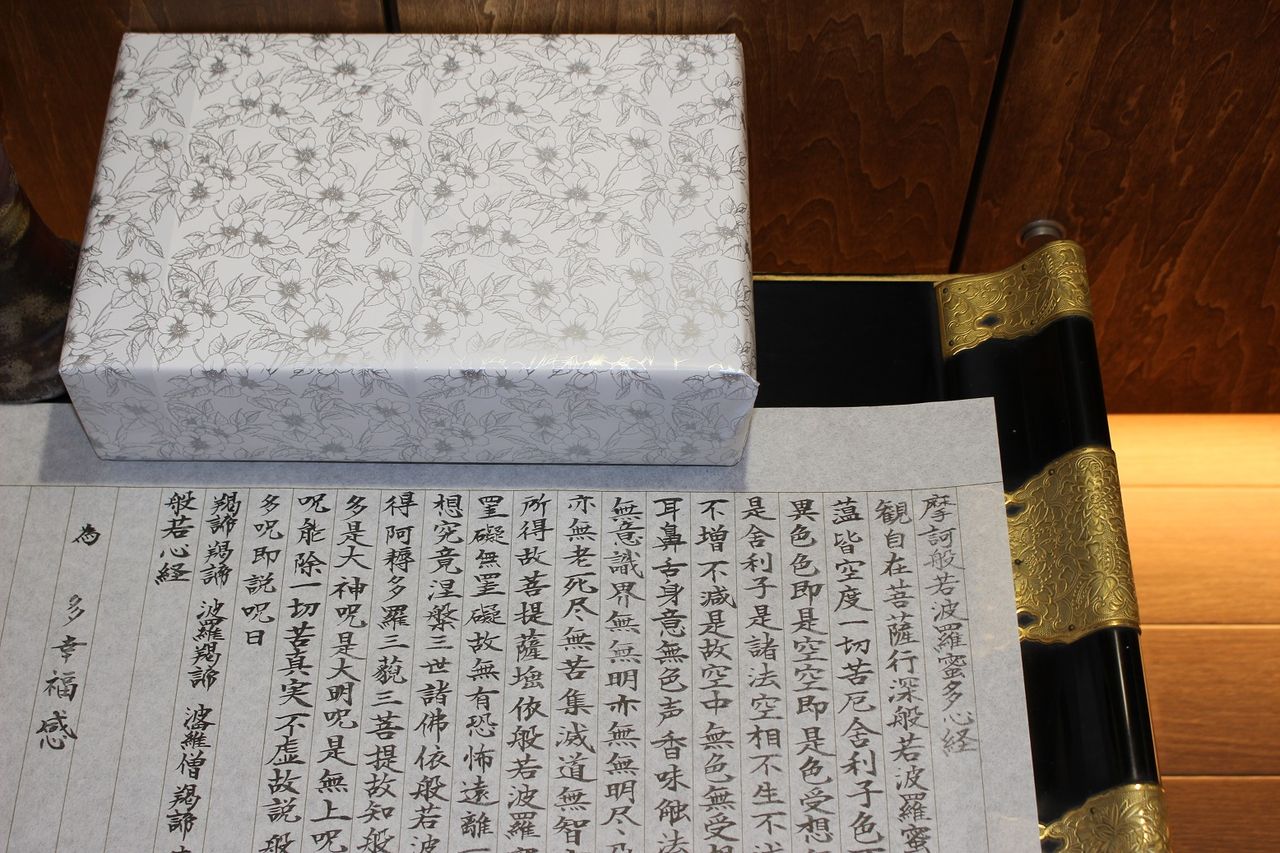 摩訶般若波羅蜜多心経
観自在菩薩行深般若波羅蜜
蕰皆空度一切苦厄舎利子色
異色色即是空空即是色受想
是舎利子是諸法空相不生不
不増不減是故空中無色無受
耳鼻舌身意無色声香味触法
無意識界無無明亦無無明尽
亦無老死尽無苦集滅道無智
所得故菩提薩埵依般若波羅
罣礙無罣礙故無有恐怖遠離一
想究竟涅槃三世諸佛依般若波
得阿耨多羅三藐三菩提故知般
多是大神呪是大明呪是無上呪
呪能除一切苦真実不虚故説般
多呪即説呪曰
羯諦羯諦 波羅羯諦 波羅僧羯諦
般若心経
為 多幸福感